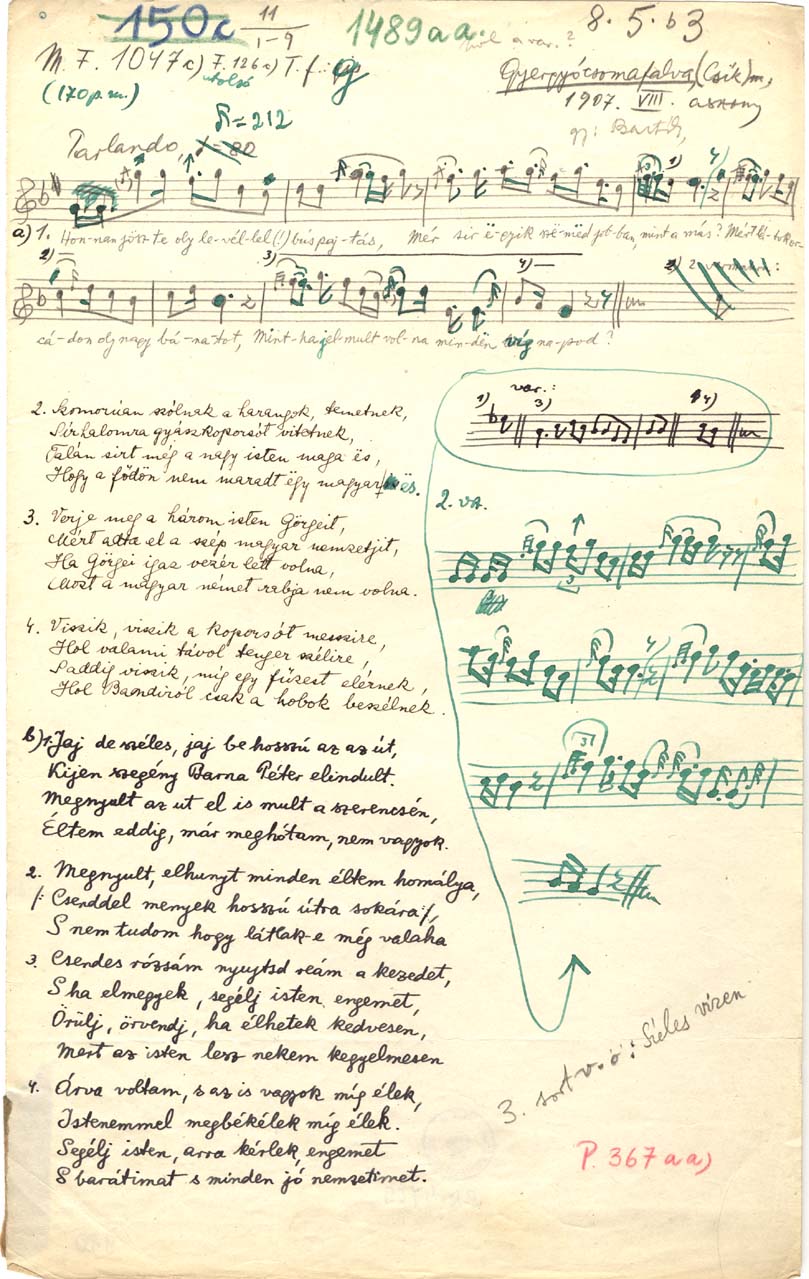 150c 11/1-9 1489aa. 8. 5. b 3
ól a var.?
M. F. 1047c) F. 126a) T. f.: g
utolsó
(170 p. m.) Gyergyócsomafalva, (Csík) m,
1907. VIII. asszony
♪=212 gy: Bartók,
Parlando, =80
a) 1. Hon-nan jösz te oly le-vél-lel(!) bús paj-tás, Mér sir ë-gyik szë-med job-ban, mint a más? Mért
cá-don oly nagy bá-na-tot, Mint-ha jel-mult vol-na min-dën víg na-pod?
1) 2) 3) 4)
var.:
1) 3) 4)
2. Szomorúan szólnak a harangok, temetnek,
Sírhalomra gyászkoporsót vitetnek,
Talán sirt még a nagy isten maga ës,
Hogy a födön nem maradt ëgy magyar ës.
2. va.
3. Verje meg a három isten Görgeit,
Mért adta el a szép magyar nemzetjit,
Ha Görgei igaz vezér lett volna,
Most a magyar német rabja nem volna.
4. Viszik, viszik a koporsót messzire,
Hol valami távol tenger szélire,
Saddig viszik, míg egy füzest elérnek,
Hol Bandiról csak a hobok beszélnek.
b) 1. Jaj de széles, jaj be hosszú az az út,
Kijen szegény Barna Péter elindult.
Megnyult az ut el is mult a szerencsén,
Éltem eddig, már meghótam, nem vagyok.
2. Megnyult, elhunyt minden éltem homálya,
/: Csenddel menyek hosszú útra sokára :/,
S nem tudom hogy látlak-e még valaha
3. Csendes rózsám nyujtsd reám a kezedet,
S ha elmegyek, segélj isten engemet,
Örülj, örvendj, ha élhetek kedvesen,
Mert az isten lesz nekem kegyelmesen
3. sort v. ö: Széles vizen
4. Árva voltam, s az is vagyok míg élek,
Istenemmel megbékélek míg élek.
Segélj isten, arra kérlek, engemet
S barátimat s minden jó nemzetimet.
P. 367 aa)